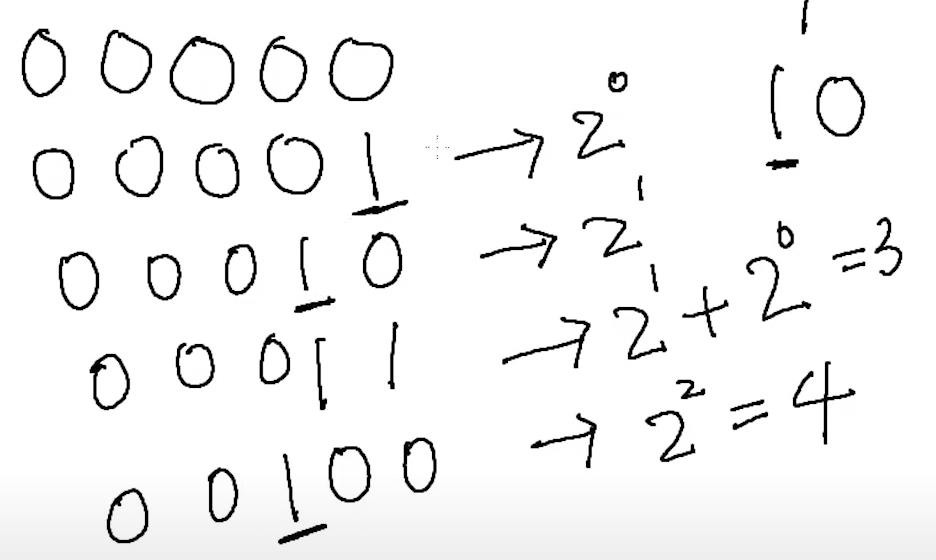 0 0 0 0 0
0 0 0 0 1 → 2⁰
1
1 0
0 0 0 1 0 → 2¹
0 0 0 1 1 → 2¹ + 2⁰ = 3
0 0 1 0 0 → 2² = 4